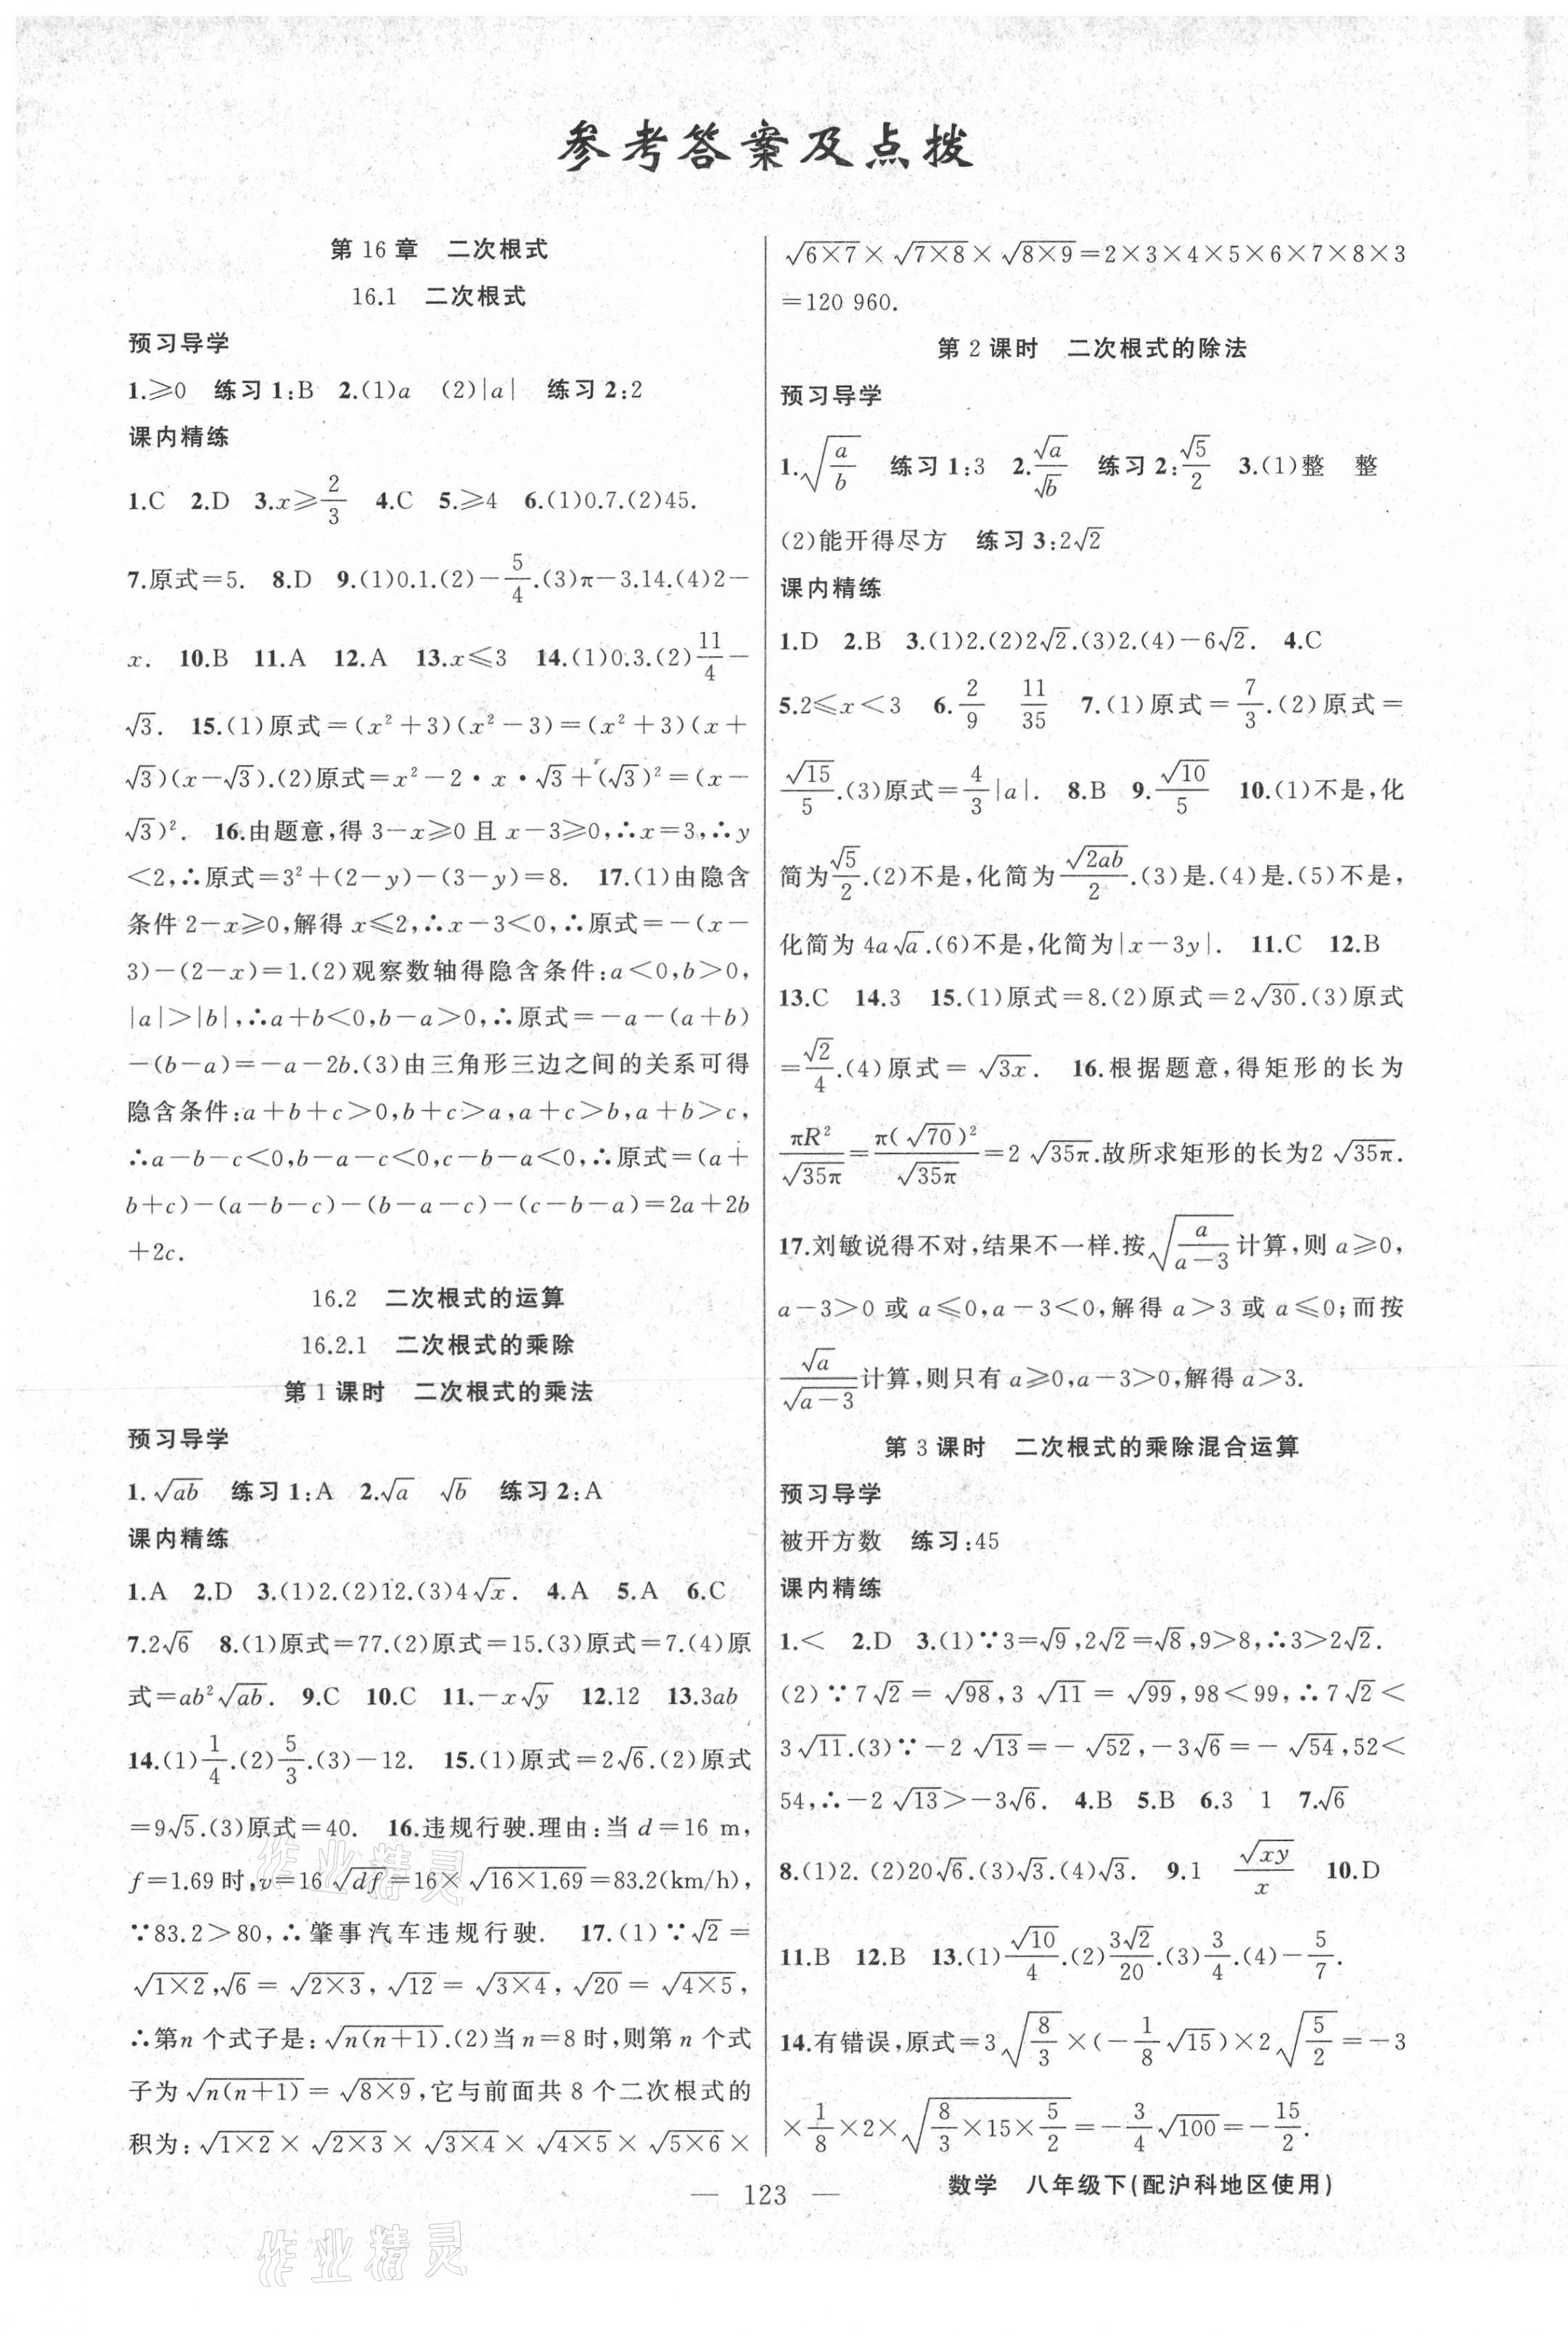 参考答案及点拨
第 16 章　二次根式
16.1　二次根式
预习导学
1.≥0　练习 1:B　2.(1)a　(2)|a|　练习 2:2
课内精练
1.C　2.D　3.x≥2/3　4.C　5.≥4　6.(1)0.7.(2)45.
7.原式=5.　8.D　9.(1)0.1.(2)−5/4.(3)π−3.14.(4)2−
x.　10.B　11.A　12.A　13.x≤3　14.(1)0.3.(2)11/4−
√3.　15.(1)原式=(x²+3)(x²−3)=(x²+3)(x+
√3)(x−√3).(2)原式=x²−2·x·√3+(√3)²=(x−
√3)².　16.由题意,得 3−x≥0 且 x−3≥0,∴x=3,∴y
<2,∴原式=3²+(2−y)−(3−y)=8.　17.(1)由隐含
条件 2−x≥0,解得 x≤2,∴x−3<0,∴原式=−(x−
3)−(2−x)=1.(2)观察数轴得隐含条件:a<0,b>0,
|a|>|b|,∴a+b<0,b−a>0,∴原式=−a−(a+b)
−(b−a)=−a−2b.(3)由三角形三边之间的关系可得
隐含条件:a+b+c>0,b+c>a,a+c>b,a+b>c,
∴a−b−c<0,b−a−c<0,c−b−a<0,∴原式=(a+
b+c)−(a−b−c)−(b−a−c)−(c−b−a)=2a+2b
+2c.
16.2　二次根式的运算
16.2.1　二次根式的乘除
第 1 课时　二次根式的乘法
预习导学
1.√(ab)　练习 1:A　2.√a　√b　练习 2:A
课内精练
1.A　2.D　3.(1)2.(2)12.(3)4√x.　4.A　5.A　6.C
7.2√6　8.(1)原式=77.(2)原式=15.(3)原式=7.(4)原
式=ab²√(ab).　9.C　10.C　11.−x√y　12.12　13.3ab
14.(1)1/4.(2)5/3.(3)−12.　15.(1)原式=2√6.(2)原式
=9√5.(3)原式=40.　16.违规行驶.理由:当 d=16 m,
f=1.69 时,v=16√(df)=16×√(16×1.69)=83.2(km/h),
∵83.2>80,∴肇事汽车违规行驶.　17.(1)∵√2=
√(1×2),√6=√(2×3),√12=√(3×4),√20=√(4×5),
∴第 n 个式子是:√(n(n+1)).(2)当 n=8 时,则第 n 个式
子为√(n(n+1))=√(8×9),它与前面共 8 个二次根式的
积为:√(1×2)×√(2×3)×√(3×4)×√(4×5)×√(5×6)×
√(6×7)×√(7×8)×√(8×9)=2×3×4×5×6×7×8×3
=120 960.
第 2 课时　二次根式的除法
预习导学
1.√(a/b)　练习 1:3　2.√a/√b　练习 2:√5/2　3.(1)整　整
(2)能开得尽方　练习 3:2√2
课内精练
1.D　2.B　3.(1)2.(2)2√2.(3)2.(4)−6√2.　4.C
5.2≤x<3　6.2/9　11/35　7.(1)原式=7/3.(2)原式=
√15/5.(3)原式=4/3|a|.　8.B　9.√10/5　10.(1)不是,化
简为√5/2.(2)不是,化简为√(2ab)/2.(3)是.(4)是.(5)不是,
化简为 4a√a.(6)不是,化简为|x−3y|.　11.C　12.B
13.C　14.3　15.(1)原式=8.(2)原式=2√30.(3)原式
=√2/4.(4)原式=√(3x).　16.根据题意,得矩形的长为
πR²/√(35π)=π(√70)²/√(35π)=2√(35π).故所求矩形的长为2√(35π).
17.刘敏说得不对,结果不一样.按√(a/(a−3))计算,则 a≥0,
a−3>0 或 a≤0,a−3<0,解得 a>3 或 a≤0;而按
√a/√(a−3)计算,则只有 a≥0,a−3>0,解得 a>3.
第 3 课时　二次根式的乘除混合运算
预习导学
被开方数　练习:45
课内精练
1.<　2.D　3.(1)∵3=√9,2√2=√8,9>8,∴3>2√2.
(2)∵7√2=√98,3√11=√99,98<99,∴7√2<
3√11.(3)∵−2√13=−√52,−3√6=−√54,52<
54,∴−2√13>−3√6.　4.B　5.B　6.3　1　7.√6
8.(1)2.(2)20√6.(3)√3.(4)√3.　9.1　√(xy)/x　10.D
11.B　12.B　13.(1)√10/4.(2)3√2/20.(3)3/4.(4)−5/7.
14.有错误,原式=3√(8/3)×(−1/8√15)×2√(5/2)=−3
×1/8×2×√(8/3×15×5/2)=−3/4√100=−15/2.
— 123 —
数学　八年级下(配沪科地区使用)
作业精灵
作业精灵